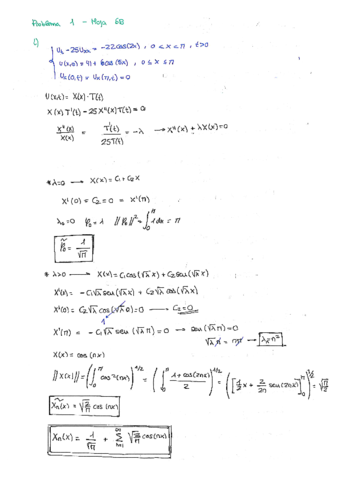 Problema 1 - Hoja 6B
i) { Ut - 25Uxx = -22cos(2x) , 0 < x < π , t>0
U(x,0) = 41 + 6cos(5x) , 0 ≤ x ≤ π
Ux(0,t) = Ux(π,t) = 0
U(x,t) = X(x)·T(t)
X(x)T'(t) - 25X''(x)T(t) = 0
X''(x)/X(x) = T'(t)/25T(t) = -λ → X''(x) + λX(x) = 0
* λ=0 → X(x) = C1 + C2X
X'(0) = C2 = 0 = X'(π)
λ0=0 φ0=1 ||φ0||² = ∫₀^π 1dx = π
φ̃0 = 1/√π
* λ>0 → X(x) = C1cos(√λ x) + C2sen(√λ x)
X'(x) = -C1√λ sen(√λ x) + C2√λ cos(√λ x)
X'(0) = C2√λ cos(√λ 0) = 0 → C2=0
1
X'(π) = -C1√λ sen(√λ π) = 0 → sen(√λ π) = 0
√λ π = nπ → λ=n²
X(x) = cos(nx)
||X(x)|| = (∫₀^π cos²(nx))^1/2 = (∫₀^π 1+cos(2nx)/2)^1/2 = ([1/2 x + 2/2n sen(2nx)]₀^π)^1/2 = √π/2
X̃n(x) = √2/π cos(nx)
Xn(x) = 1/√π + Σ n=1 ∞ √2/π cos(nx)